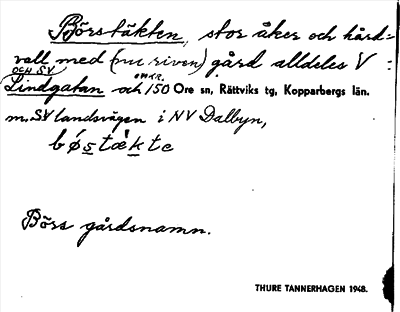 Börstäkten, stor åker och hård-
vall med (nu riven) gård alldeles V
och SV
Lindgatan och omkr. 150 Ore sn, Rättviks tg, Kopparbergs län.
m. SV landsvägen i NV Dalbyn,
bǿstæ̀kte
Börs gårdsnamn.
THURE TANNERHAGEN 1948.